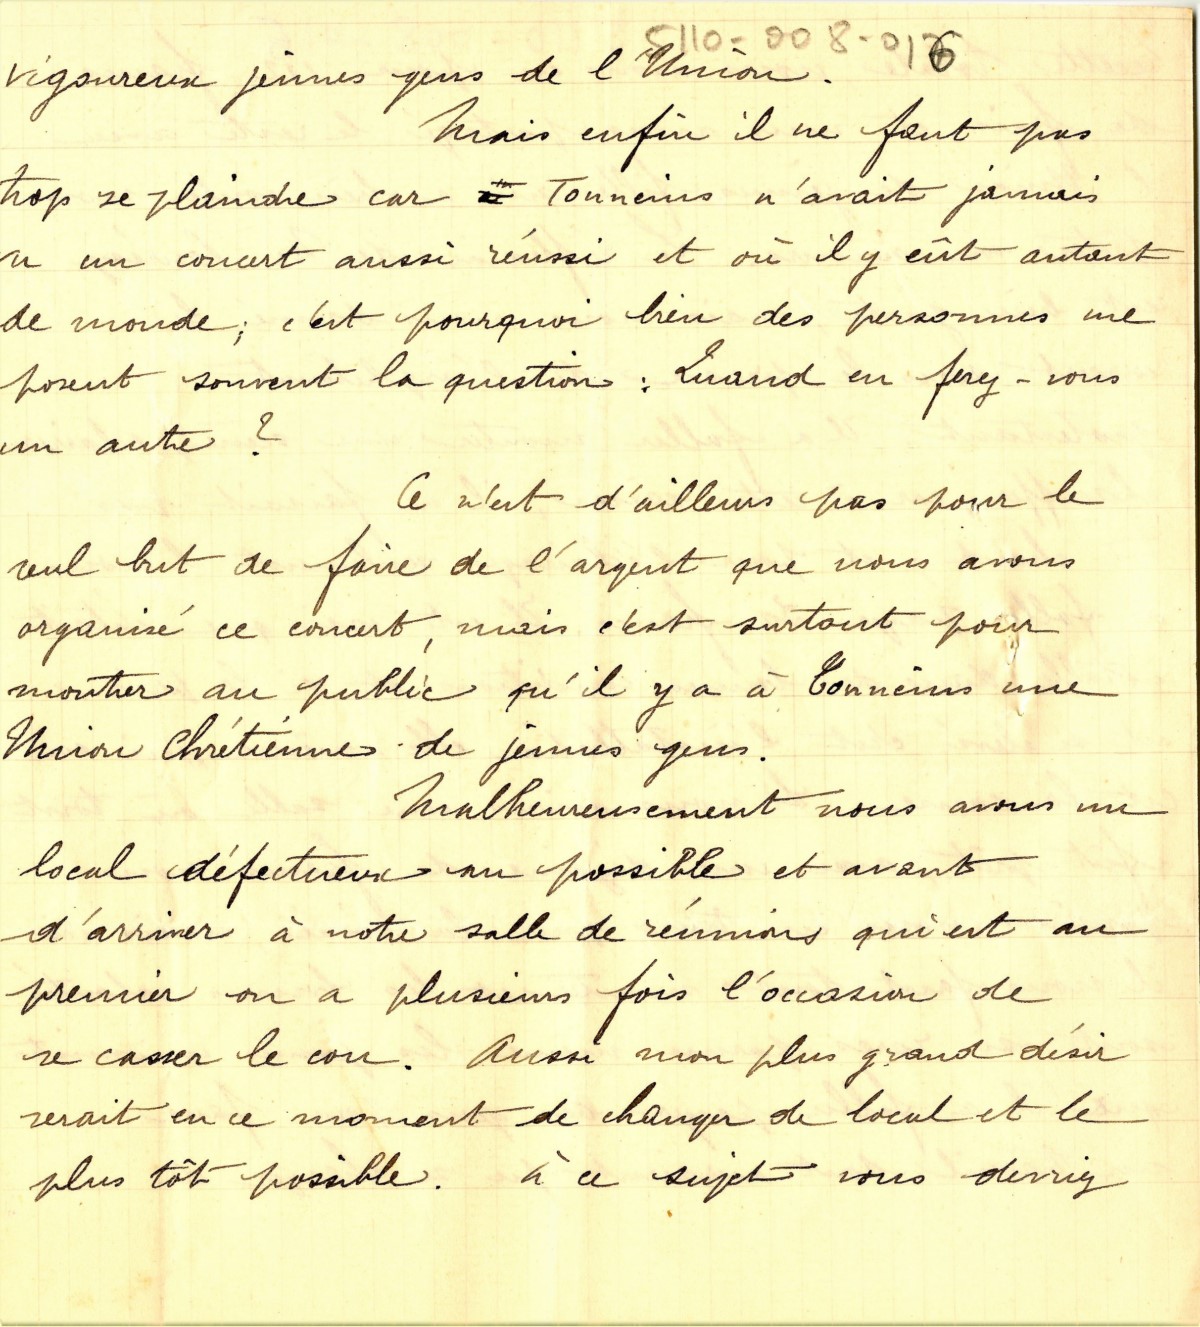 5110-008-016
vigoureux jeunes gens de l'Union.
Mais enfin il ne faut pas
trop se plaindre car Tonneins n'avait jamais
vu un concert aussi réussi et où il y eût autant
de monde; c'est pourquoi bien des personnes me
posent souvent la question: Quand en ferez-vous
un autre?
Ce n'est d'ailleurs pas pour le
seul but de faire de l'argent que nous avons
organisé ce concert, mais c'est surtout pour
montrer au public qu'il y a à Tonneins une
Union Chrétienne de jeunes gens.
Malheureusement nous avons un
local défectueux au possible et avant
d'arriver à notre salle de réunions qui est au
premier on a plusieurs fois l'occasion de
se casser le cou. Aussi mon plus grand désir
serait en ce moment de changer de local et le
plus tôt possible. à ce sujet vous devriez